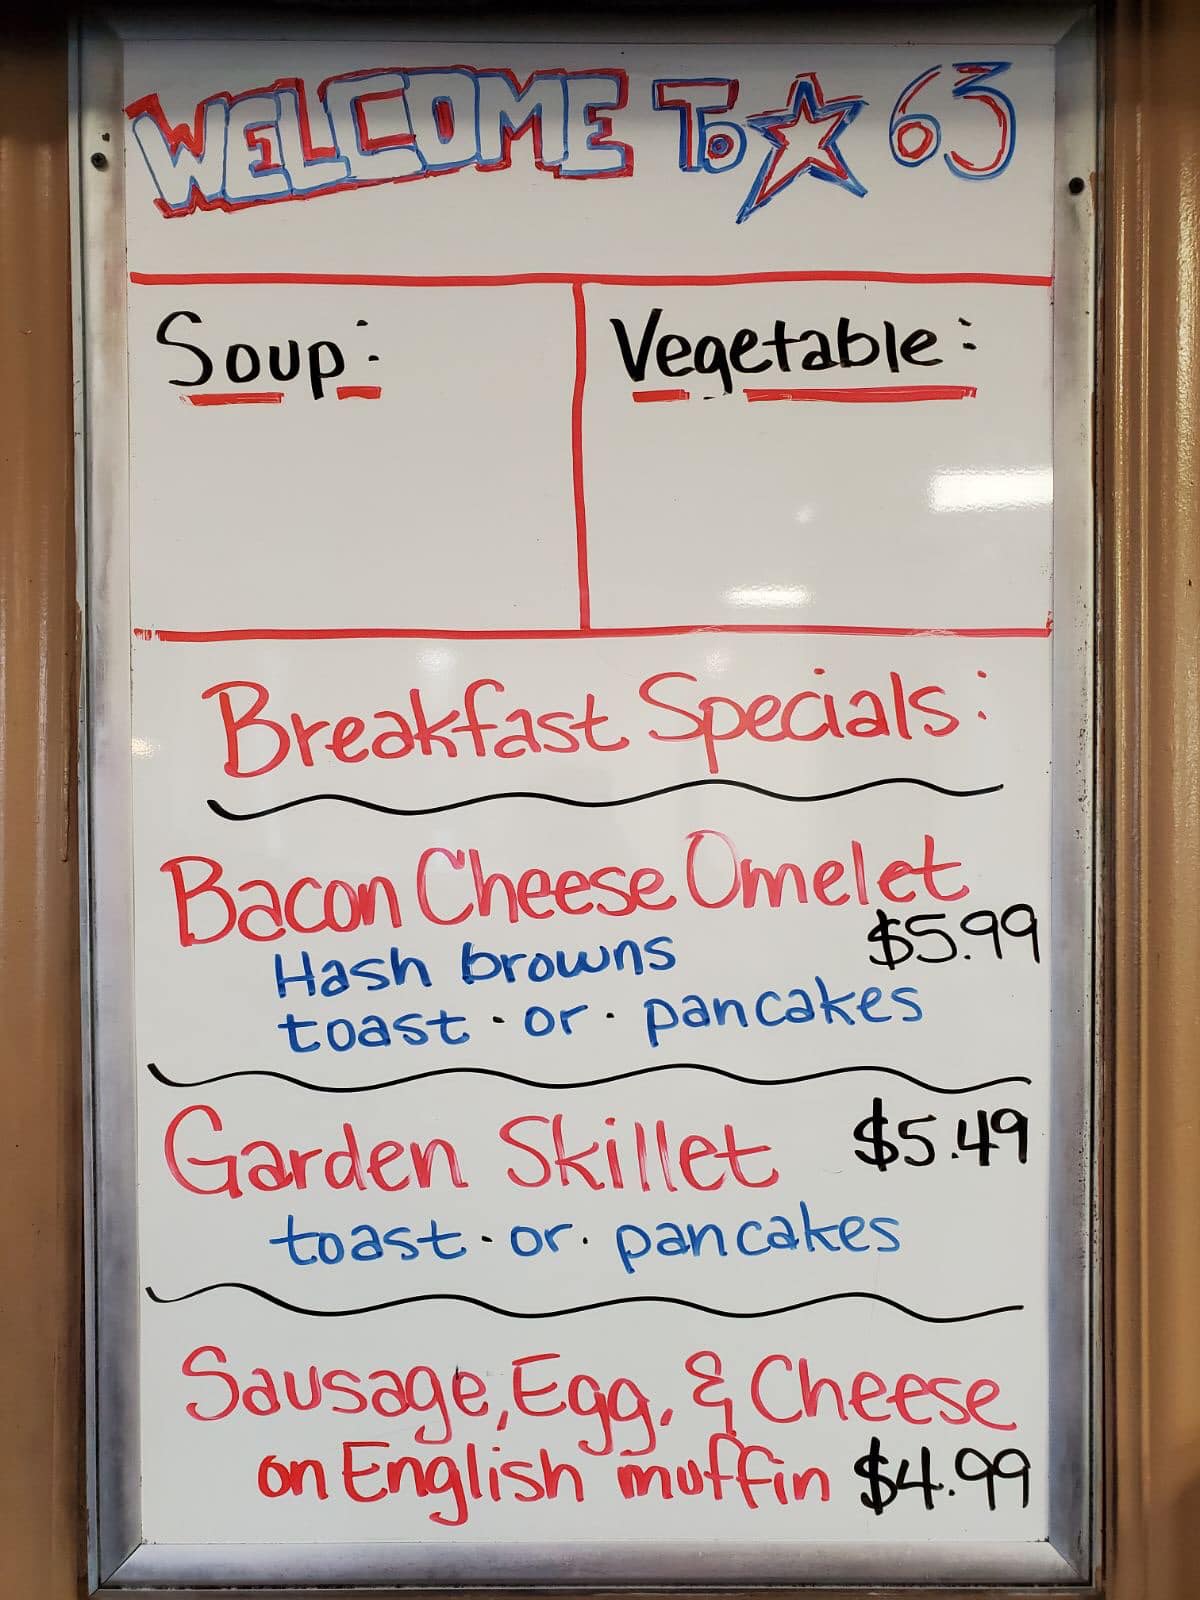 WELCOME To ☆ 63
Soup:
Vegetable:
Breakfast Specials:
Bacon Cheese Omelet
$5.99
Hash browns
toast · or · pancakes
Garden Skillet $5.49
toast · or · pancakes
Sausage, Egg, & Cheese
on English muffin $4.99